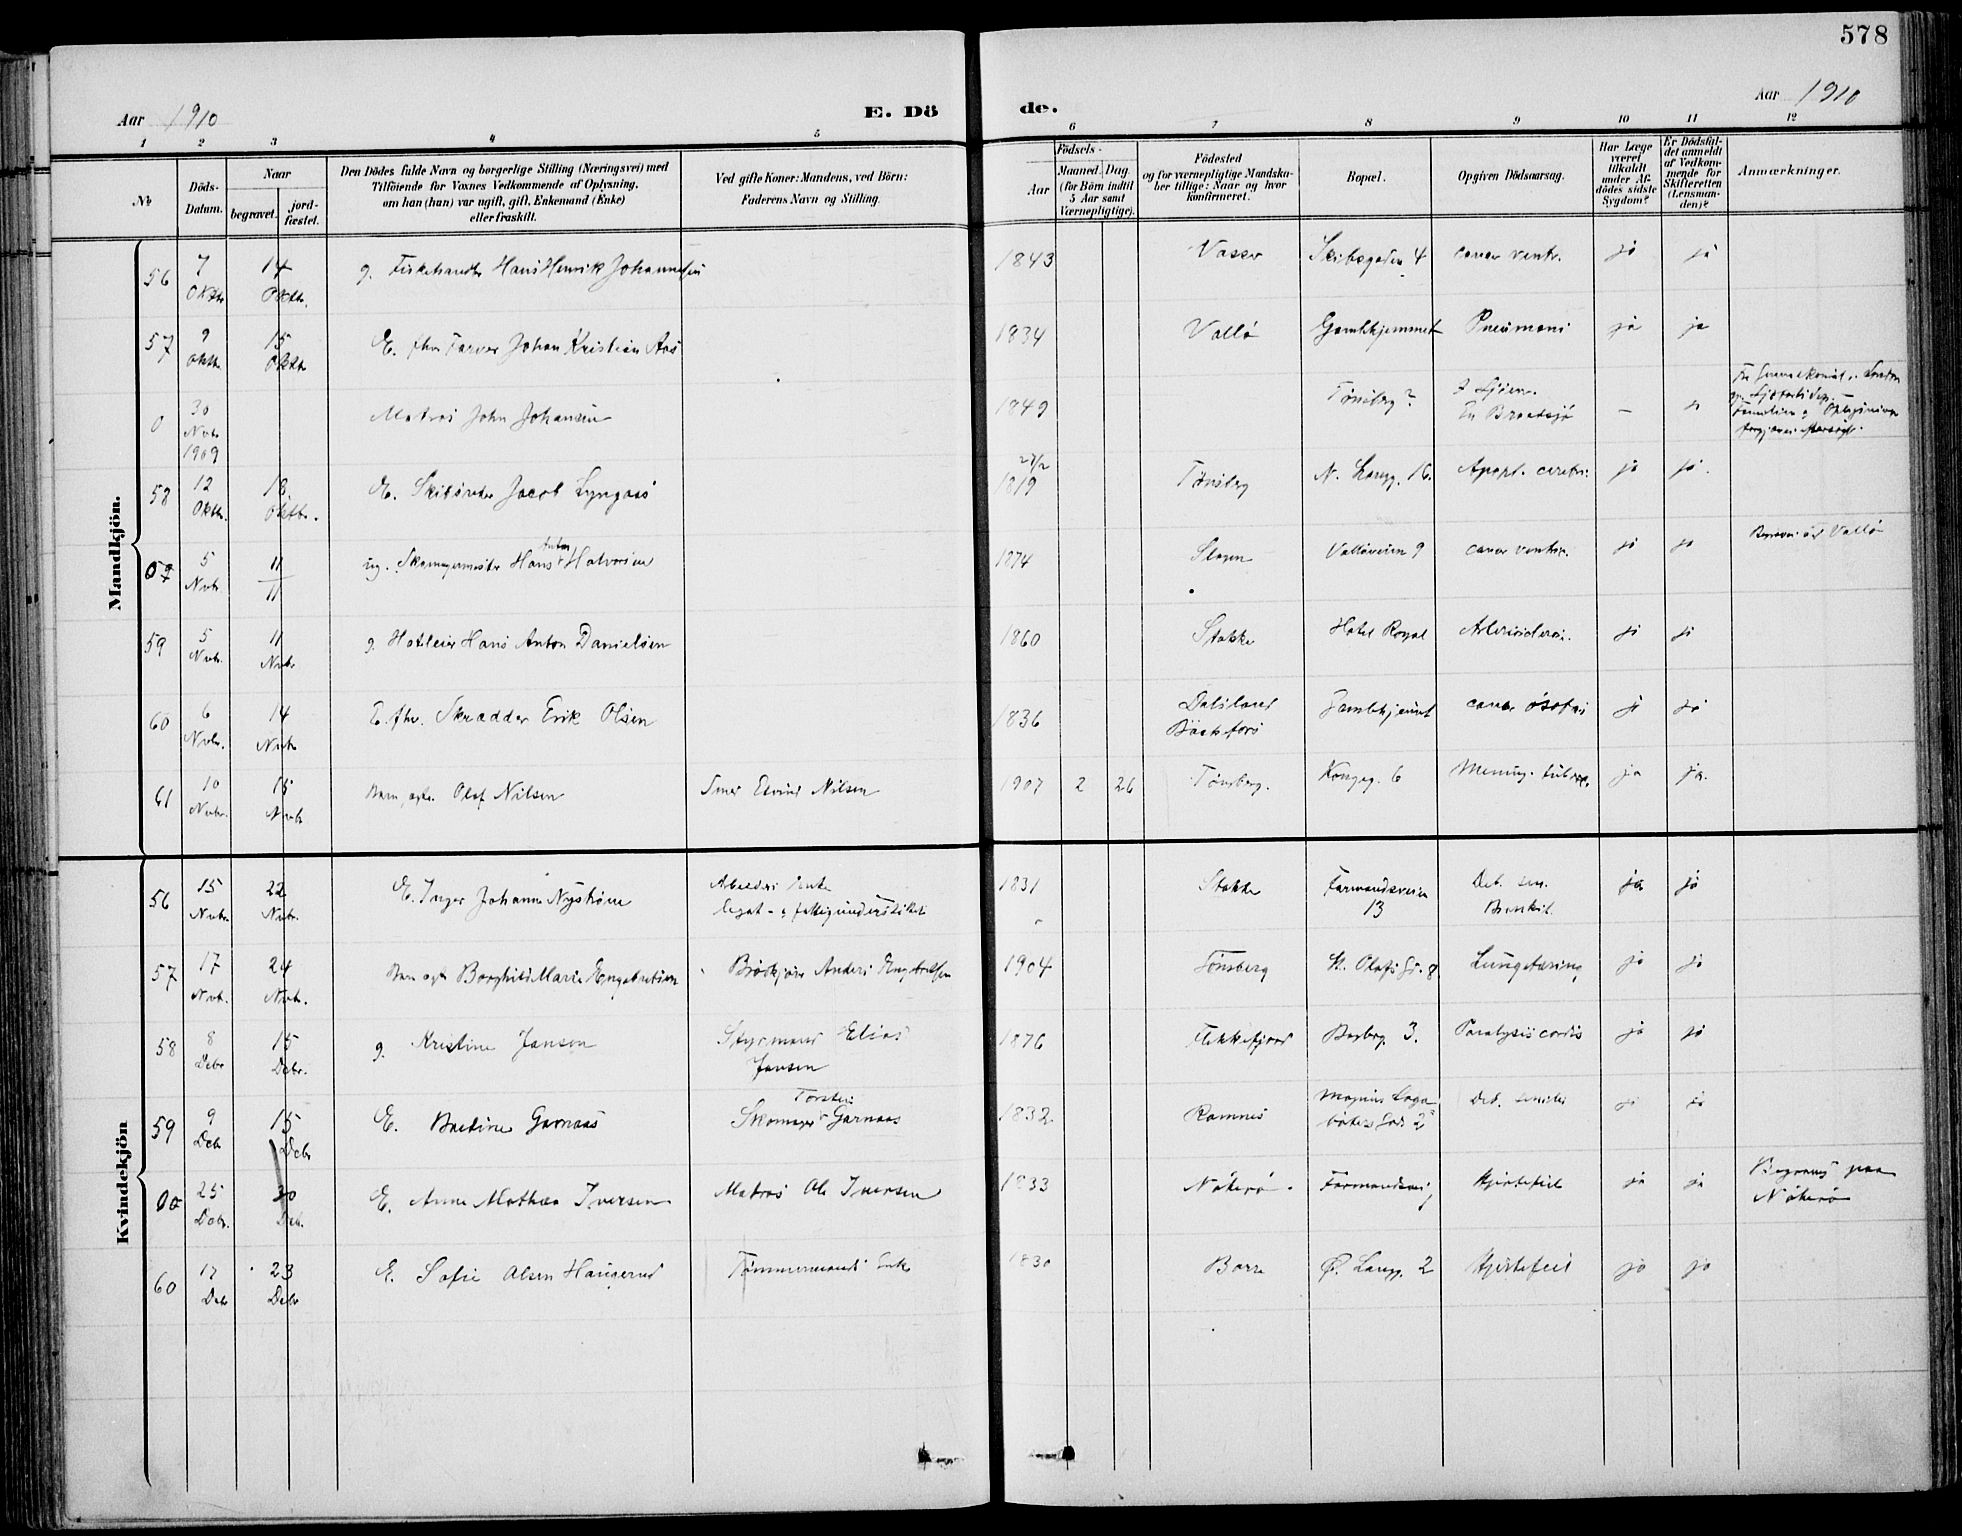 578
Aar 1910
E. Döde.
Aar 1910
1 2 3 4 5 6 7 8 9 10 11 12
№
Döds-Datum.
Naar
begravet.
jord-fæstet.
Den Dödes fulde Navn og borgerlige Stilling (Næringsvei) med
Tilföiende for Voxnes Vedkommende af Oplysning,
om han (hun) var ugift, gift, Enkemand (Enke)
eller fraskilt.
Ved gifte Koner: Mandens, ved Börn:
Faderens Navn og Stilling.
Födsels-
Aar
Maaned.
Dag.
(for Börn indtil
5 Aar samt
Værnepligtige).
Födested
og for værnepligtige Mandska-
ber tillige: Naar og hvor
konfirmeret.
Bopæl.
Opgiven Dödsaarsag.
Har Læge
været
tilkaldt
under Af-
dödes sidste
Sygdom?
Er Dödsfal-
det anmeldt
af Vedkom-
mende for
Skifteretten
(Lensman-
den)?
Anmærkninger.
Mandkjön.
56 7 Oktbr. 14 Oktbr. g. Fiskehandler Hans Henrik Johannesen 1843 Vasser Skibsgaden 4 cancer ventr. ja ja
57 9 Oktbr. 15 Oktbr. E. fhv. Farver Johan Kristian Aas 1834 Vallö Gamlehjemmet Pneumoni ja ja
0 30 Novbr. 1909 Matros John Johansen 1849 Tønsberg? — ja
58 12 Oktbr. 18 Oktbr. E. Skibsreder Jacob Lyngaas 27/2 1819 Tønsberg N. Langg. 16. Apopl. cerebri ja ja.
5 Novbr. 11/11 ug. Skomagermester Hans Anton Halvorsen 1874 Slagen Valløveien 9 cancer ventr. ja ja Vallö
59 5 Novbr. 11 Novbr. g. Hotleier Hans Anton Danielsen 1860 Stokke Hotel Royal ja ja
60 6 Novbr. 14 Novbr. E. fhv. Skrædder Erik Olsen 1836 Dalsland Gamlehjemmet cancer ja ja
61 10 Novbr. 15 Novbr. Barn, egte. Olaf Nilsen Smed Eivind Nilsen 1907 2 26 Tønsberg. Kongeg. 6 Mening. tuberc. ja ja.
Kvindekjön
56 15 Novbr. 22 Novbr. E. Inger Johanne Nystrøm Enke
Legat- & fattigunderstöttet 1831 Stokke Farmandsveien 13 Deb. sen. Bronkit. ja ja
57 17 Novbr. 24 Novbr. Barn egte Borghild Marie Engebretsen Anders Engebretsen 1904 Tönsberg St. Olafs Gd. 8 Lungetæring ja ja
58 8 Debr 15 Debr. g. Kristine Jansen Styrmand Elias Jansen 1876 Flekkefjord 3. Paralysis cordis ja ja
59 9 Debr 15 Debr E. Bastine Garnaas Skomager Torsten Garnaas 1832 Ramnes Magnus Lagabøters Gd. 2 Deb. senilis ja ja
25 Debr. 30 Deb. E. Anne Mathea Iversen Matros Ole Iversen 1833 Nöterö. Farmandsvei Hjertefeil ja ja Begravet paa Nöterö
60 17 Debr 23 Debr E. Sofie Olsen Haugerud Tömmermands Enke 1830 Borre Ø. Langg. 2 Hjertefeil ja ja